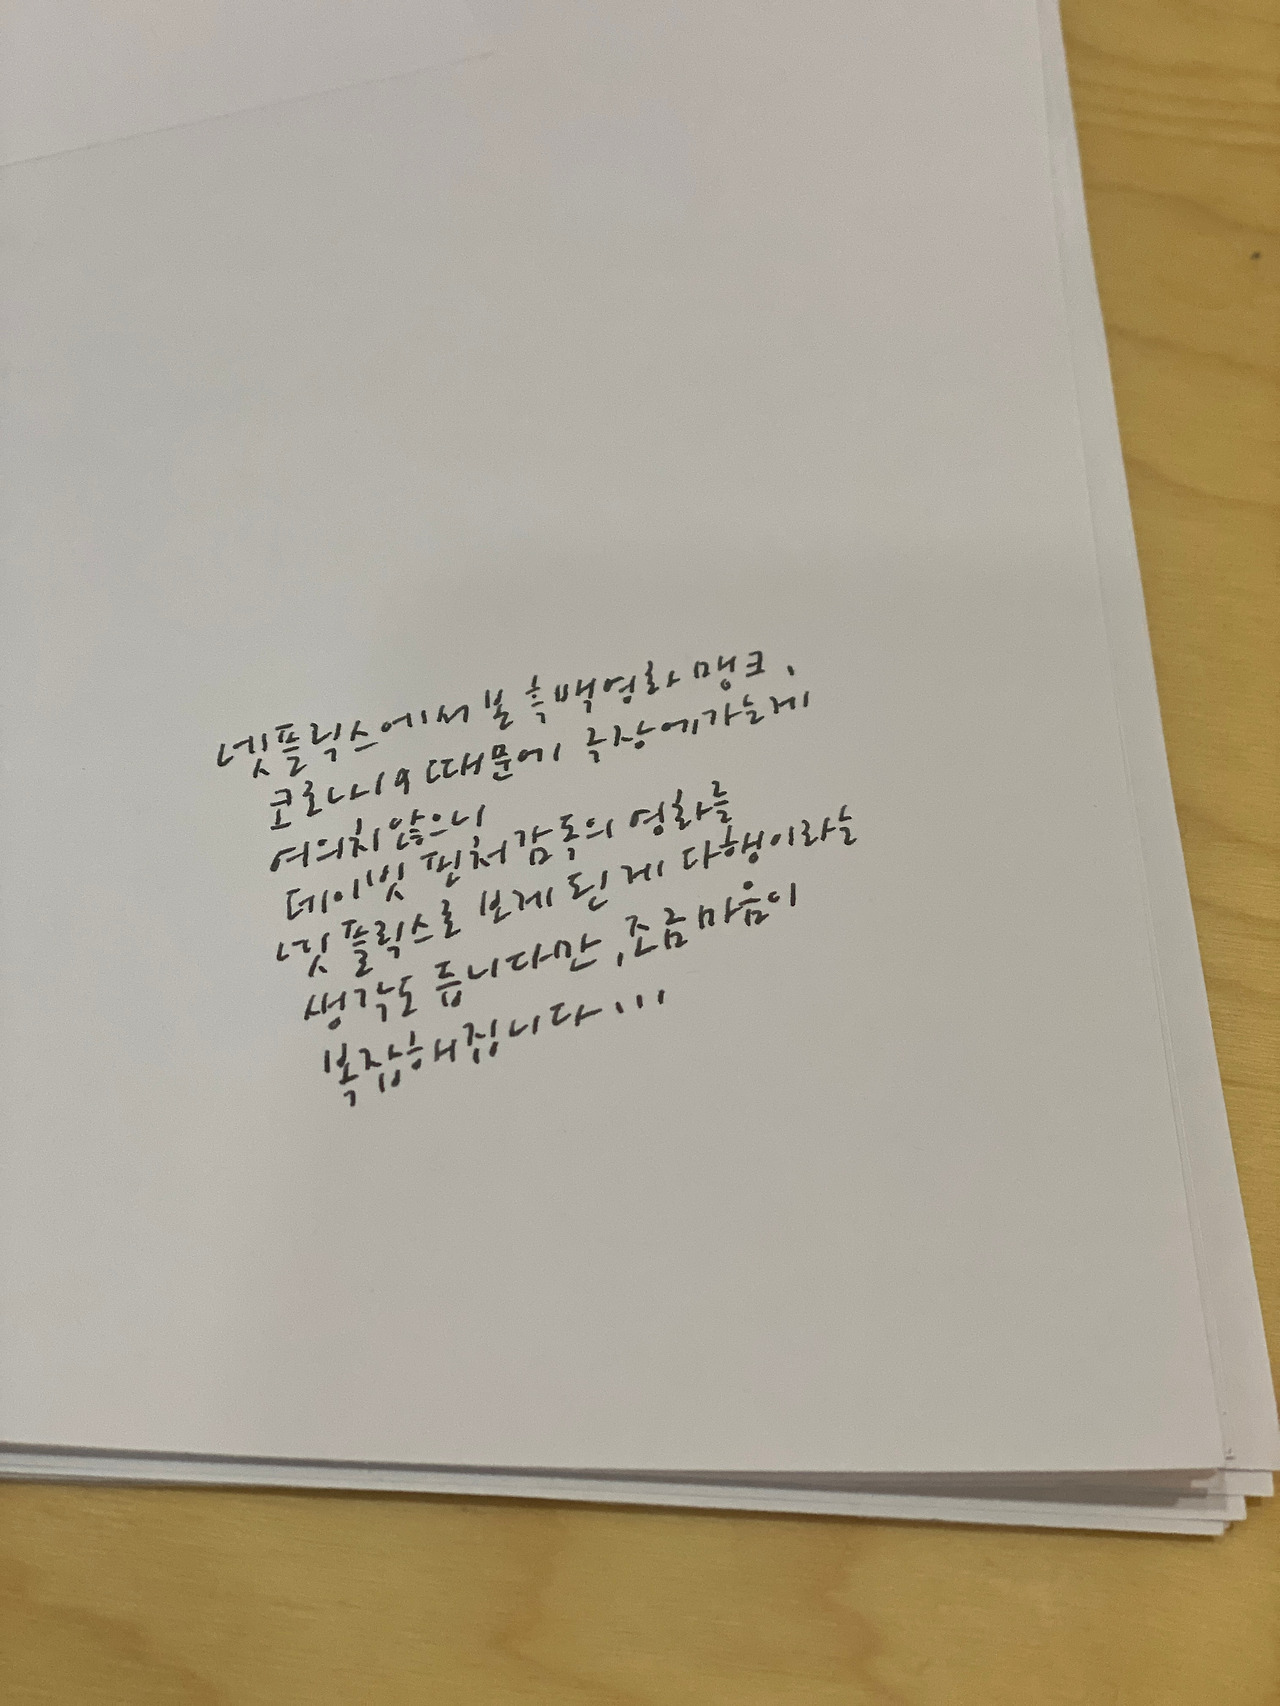 넷플릭스에서 본 흑백영화 맹크.
코로나19 때문에 극장에 가는게
여의치 않으니
데이빗 핀처 감독의 영화를
넷플릭스로 보게 된 게 다행이라는
생각도 듭니다만, 조금 마음이
복잡해집니다...